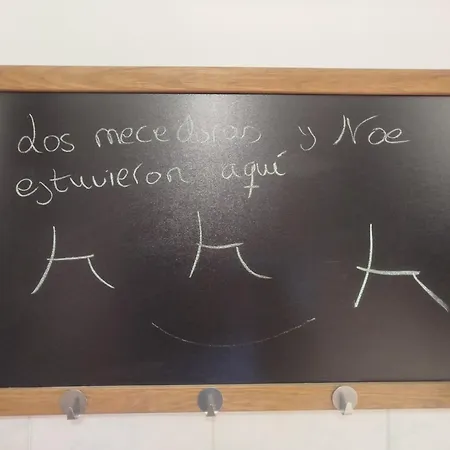 Los mecedoras y Noe
estuvieron aquí